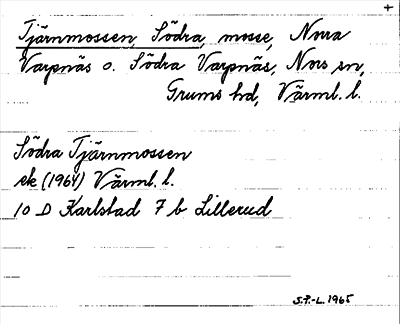 +
Tjärnmossen, Södra, mosse, Norra
Varpnäs o. Södra Varpnäs, Nors sn,
Grums hd, Värml. l.
Södra Tjärnmossen
ek (1964) Värml. l.
10 D Karlstad 7 b Lillerud
S.P.-L. 1965